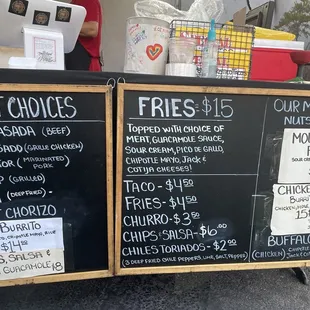 CHOICES
ASADA (BEEF)
ADO (GRILLE CHICKEN)
TOR (MARINATED PORK)
(GRILLED)
(DEEP FRIED)
CHORIZO
BURRITO
$14
SALSA &
GUACAMOLE 18
FRIES - $15
TOPPED WITH CHOICE OF
MEAT, GUACAMOLE SAUCE,
SOUR CREAM, PICO DE GALLO,
CHIPOTLE MAYO, JACK &
COTIJA CHEESES!
TACO - $4.50
FRIES - $4.50
CHURRO - $3.50
CHIPS & SALSA - $6.00
CHILES TORIADOS - $2.00
(3 DEEP FRIED CHILE PEPPERS, LIME, SALT, PEPPER)
OUR M
NUTS
MO
SOUR CRE
CHICKEN
BURRI
CHICKEN,
15
BUFFALO
(CHICKEN)